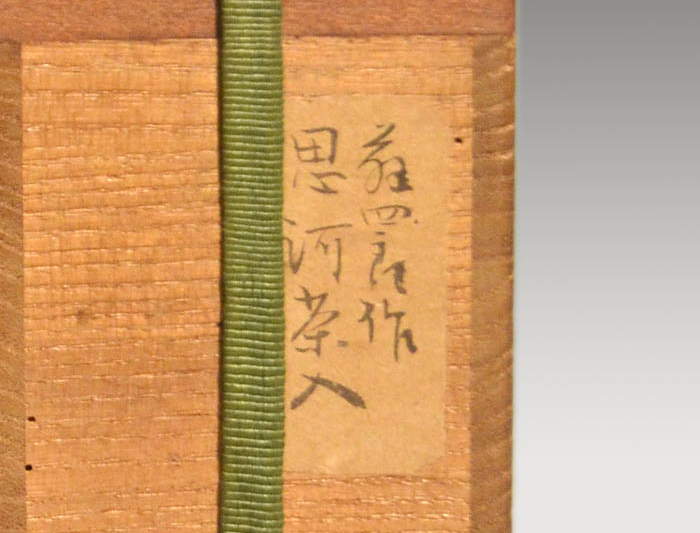 藤四郎作
思河茶入